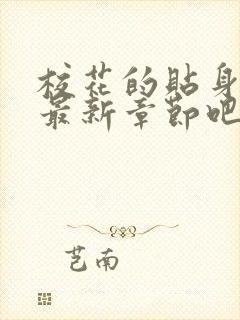 校花的贴身
最新章节吧
芑南